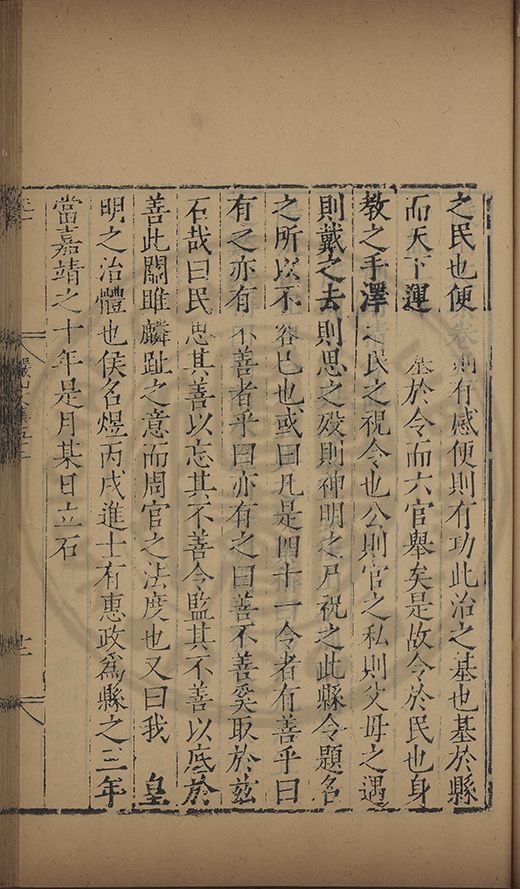 之民也便則有感便則有功此治之基也基於縣
而天下運基於令而六官舉矣是故令於民也身
教之手澤之民之視令也公則官之私則父母之遇
則戴之去則思之歿則神明之尸祝之此縣令題名
之所以不容已也或曰凡是四十一令者有善乎曰
有之亦有不善者乎曰亦有之曰善不善奚取於茲
石哉曰民思其善以忘其不善令監其不善以底於
善此關雎麟趾之意而周官之法度也又曰我 皇
明之治體也侯名煜丙戌進士有惠政為縣之三年
當嘉靖之十年是月某日立石